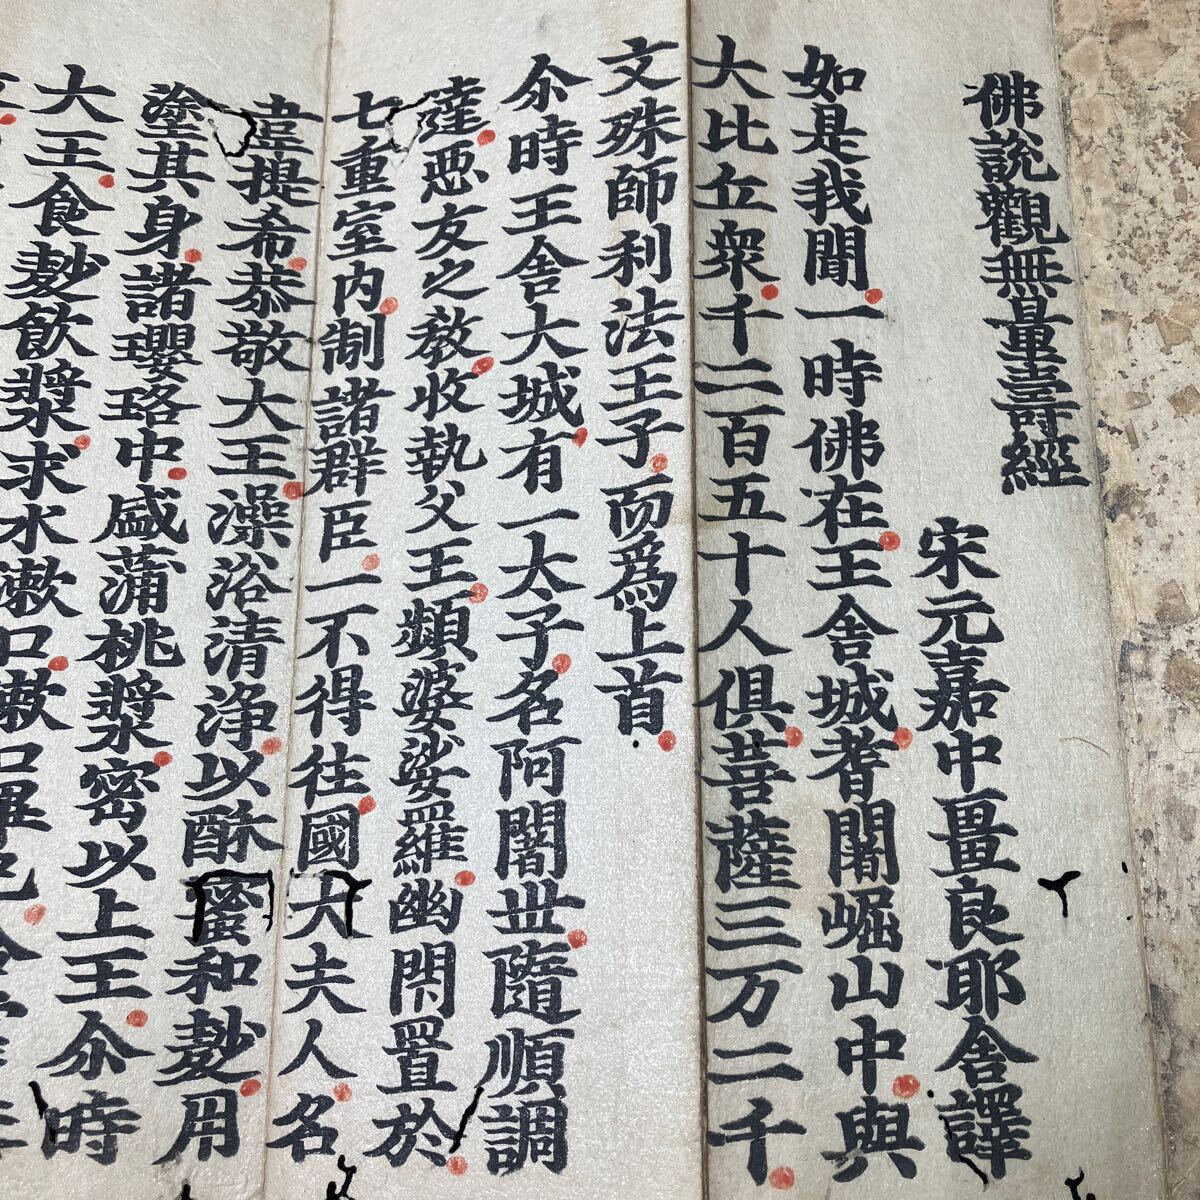 佛説觀無量壽經
宋元嘉中畺良耶舍譯
如是我聞一時佛在王舍城耆闍崛山中與
大比丘衆千二百五十人俱菩薩三万二千
文殊師利法王子而爲上首
尒時王舍大城有一太子名阿闍世隨順調
達惡友之敎收執父王頻婆娑羅幽閇置於
七重室内制諸群臣一不得往國大夫人名
韋提希恭敬大王澡浴清淨以酥蜜和麨用
塗其身諸瓔珞中盛蒲桃漿密以上王尒時
大王食麨飲漿求水漱口漱口畢已